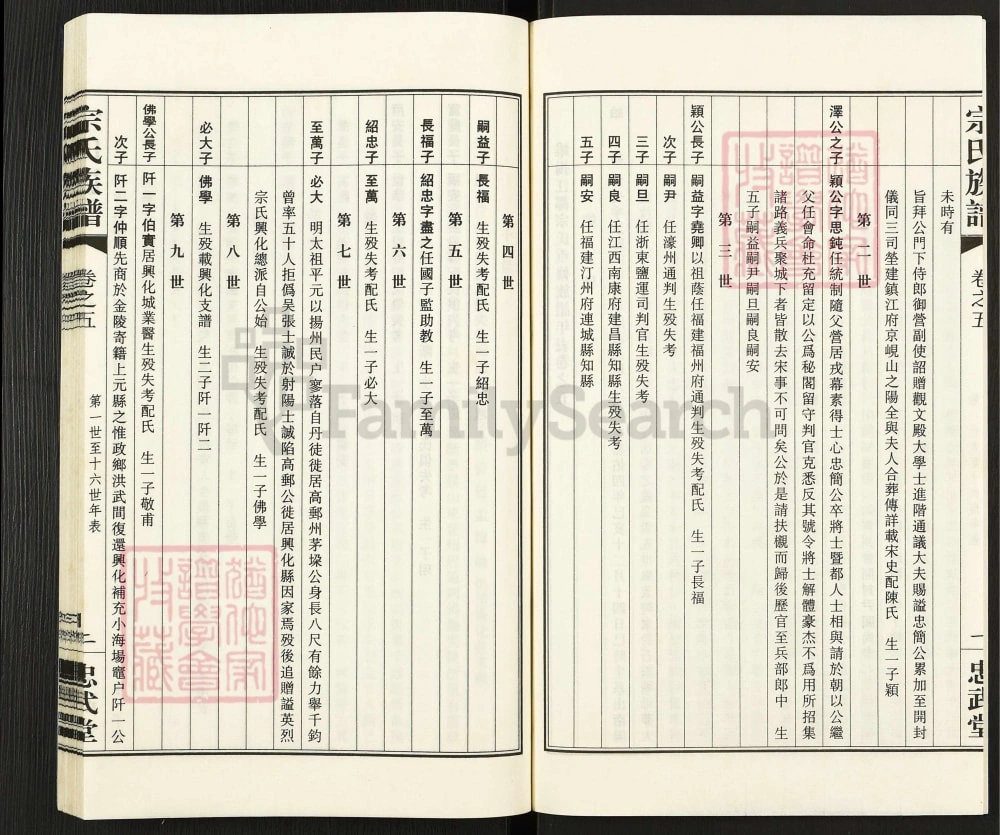 宗氏族譜 卷之五 一 忠武堂
未時有
旨拜公門下侍郎御營副使詔贈觀文殿大學士進階通議大夫賜謚忠簡公累加至開封
儀同三司塋建鎮江府京峴山之陽全與夫人合葬傳詳載宋史配陳氏 生一子穎
第二世
澤公之子 穎公字思鈍任統制隨父營居戎幕素得士心忠簡公卒將士暨都人士相與請於朝以公繼
父任會命杜充留定以公爲秘閣留守判官克悉反其號令將士解體豪杰不爲用所招集
諸路義兵聚城下者皆散去宋事不可問矣公於是請扶櫬而歸後歷官至兵部郎中 生
五子嗣益嗣尹嗣旦嗣良嗣安
第三世
穎公長子 嗣益字堯卿以祖蔭任福建福州府通判生殁失考配氏 生一子長福
次子 嗣尹 任濠州通判生殁失考
三子 嗣旦 任浙東鹽運司判官生殁失考
四子 嗣良 任江西南康府建昌縣知縣生殁失考
五子 嗣安 任福建汀州府連城縣知縣
第四世
嗣益子 長福 生殁失考配氏 生一子紹忠
第五世
長福子 紹忠字盡之任國子監助教 生一子至萬
第六世
紹忠子 至萬 生殁失考配氏 生一子必大
第七世
至萬子 必大 明太祖平元以揚州民户寥落自丹徒徙居高郵州茅垛公身長八尺有餘力舉千鈞
曾率五十人拒僞吴張士誠於射陽士誠陷高郵公徙居興化縣因家焉殁後追贈謚英烈
宗氏興化總派自公始 生殁失考配氏 生一子佛學
第八世
必大子 佛學 生殁載興化支譜 生二子阡一阡二
第九世
佛學公長子 阡一字伯實居興化城業醫生殁失考配氏 生一子敬甫
次子 阡二字仲順先商於金陵寄籍上元縣之惟政鄉洪武間復還興化補充小海場竈户阡一公
宗氏族譜 卷之五 第一世至十六世年表 二 忠武堂